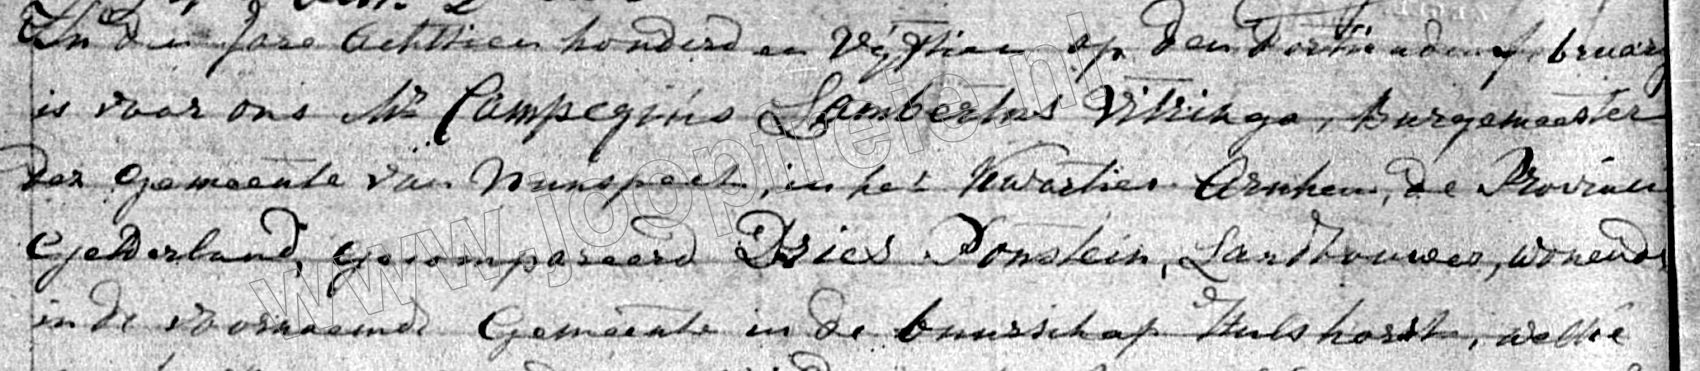 In den jare Achttien honderd en Vyftien op den dertienden february
is voor ons Mr Campegius Lambertus Vitringa, Burgemeester
der Gemeente van Nunspeet, in het Kwartier Arnhem, de Provincie
Gelderland, gecompareerd Dries Ponstein, Landbouwer, wonende
in de voornoemde Gemeente in de buurschap Hulshorst, welke
www.jooptreie.nl